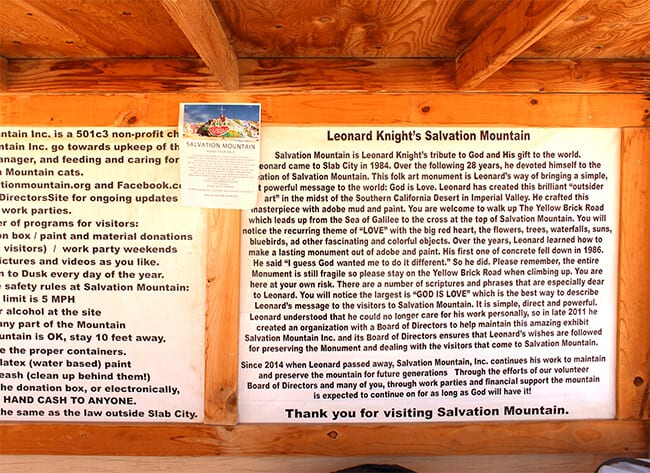 ntain Inc. is a 501c3 non-profit ch
ntain Inc. go towards upkeep of th
anager, and feeding and caring for
n Mountain cats.
tionmountain.org and Facebook.co
DirectorsSite for ongoing updates
work parties.
er of programs for visitors:
on box / paint and material donations
visitors) / work party weekends
ictures and videos as you like.
n to Dusk every day of the year.
e safety rules at Salvation Mountain:
limit is 5 MPH
r alcohol at the site
any part of the Mountain
untain is OK, stay 10 feet away.
e the proper containers.
latex (water based) paint
leash (clean up behind them!)
the donation box, or electronically,
HAND CASH TO ANYONE.
the same as the law outside Slab City.
SALVATION MOUNTAIN
Leonard Knight's Salvation Mountain
Salvation Mountain is Leonard Knight's tribute to God and His gift to the world.
eonard came to Slab City in 1984. Over the following 28 years, he devoted himself to the
ation of Salvation Mountain. This folk art monument is Leonard's way of bringing a simple,
t powerful message to the world: God is Love. Leonard has created this brilliant "outsider
art" in the midst of the Southern California Desert in Imperial Valley. He crafted this
masterpiece with adobe mud and paint. You are welcome to walk up The Yellow Brick Road
which leads up from the Sea of Galilee to the cross at the top of Salvation Mountain. You will
notice the recurring theme of "LOVE" with the big red heart, the flowers, trees, waterfalls, suns,
bluebirds, ad other fascinating and colorful objects. Over the years, Leonard learned how to
make a lasting monument out of adobe and paint. His first one of concrete fell down in 1986.
He said "I guess God wanted me to do it different." So he did. Please remember, the entire
Monument is still fragile so please stay on the Yellow Brick Road when climbing up. You are
here at your own risk. There are a number of scriptures and phrases that are especially dear
to Leonard. You will notice the largest is "GOD IS LOVE" which is the best way to describe
Leonard's message to the visitors to Salvation Mountain. It is simple, direct and powerful.
Leonard understood that he could no longer care for his work personally, so in late 2011 he
created an organization with a Board of Directors to help maintain this amazing exhibit
Salvation Mountain Inc. and its Board of Directors ensures that Leonard's wishes are followed
for preserving the Monument and dealing with the visitors that come to Salvation Mountain.
Since 2014 when Leonard passed away, Salvation Mountain, Inc. continues his work to maintain
and preserve the mountain for future generations Through the efforts of our volunteer
Board of Directors and many of you, through work parties and financial support the mountain
is expected to continue on for as long as God will have it!
Thank you for visiting Salvation Mountain.